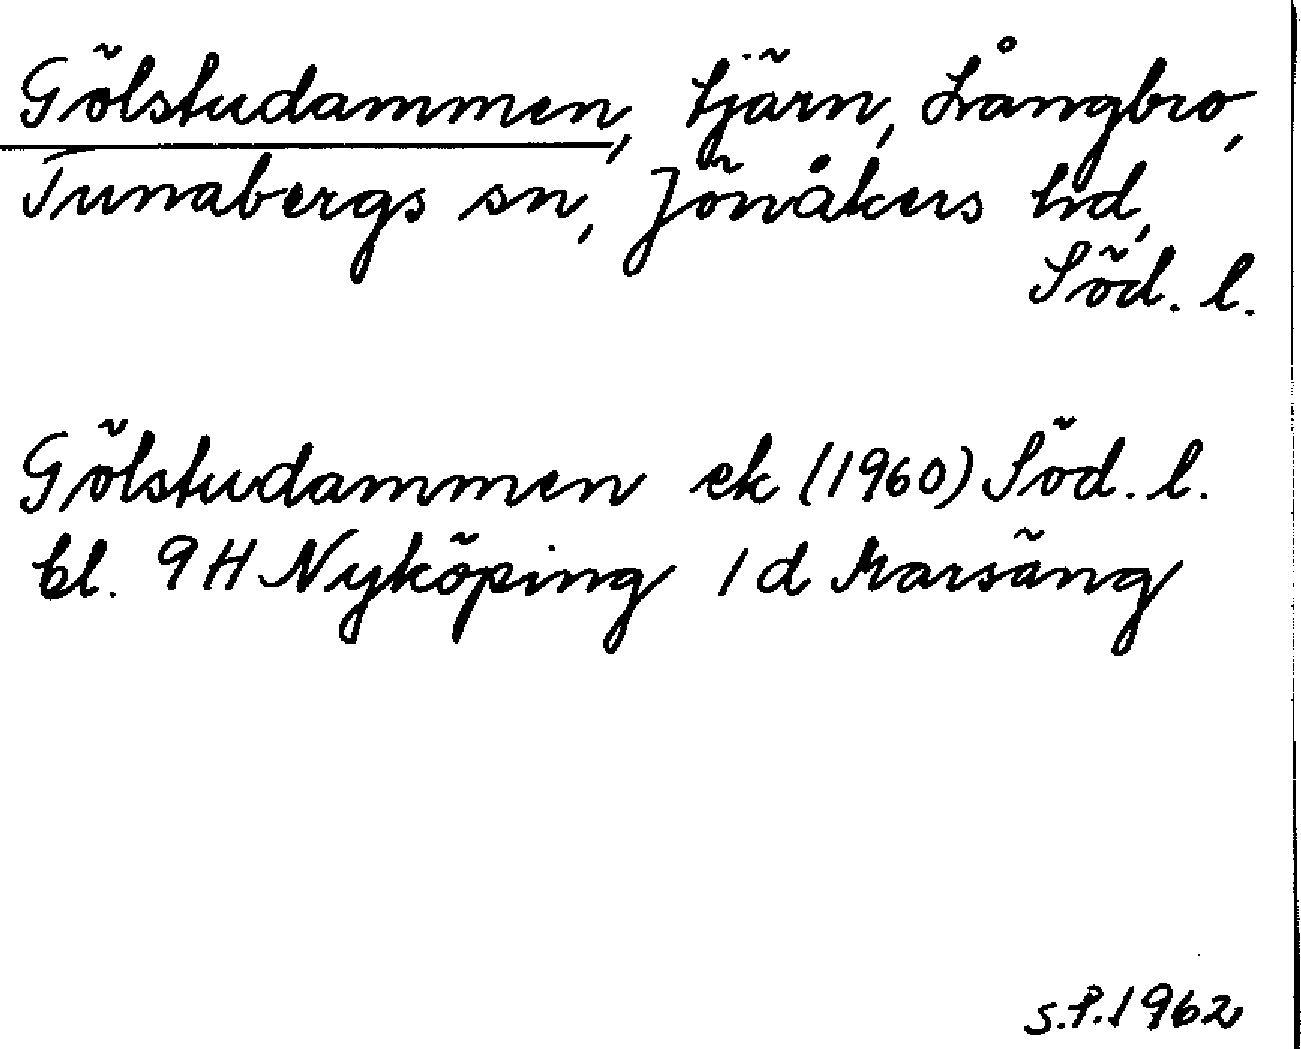 Gölstudammen, tjärn, Långbro,
Tunabergs sn, Jönåkers hd,
Söd. l.
Gölstudammen ek (1960) Söd. l.
bl. 9H Nyköping 1d Marsäng
S.P. 1962